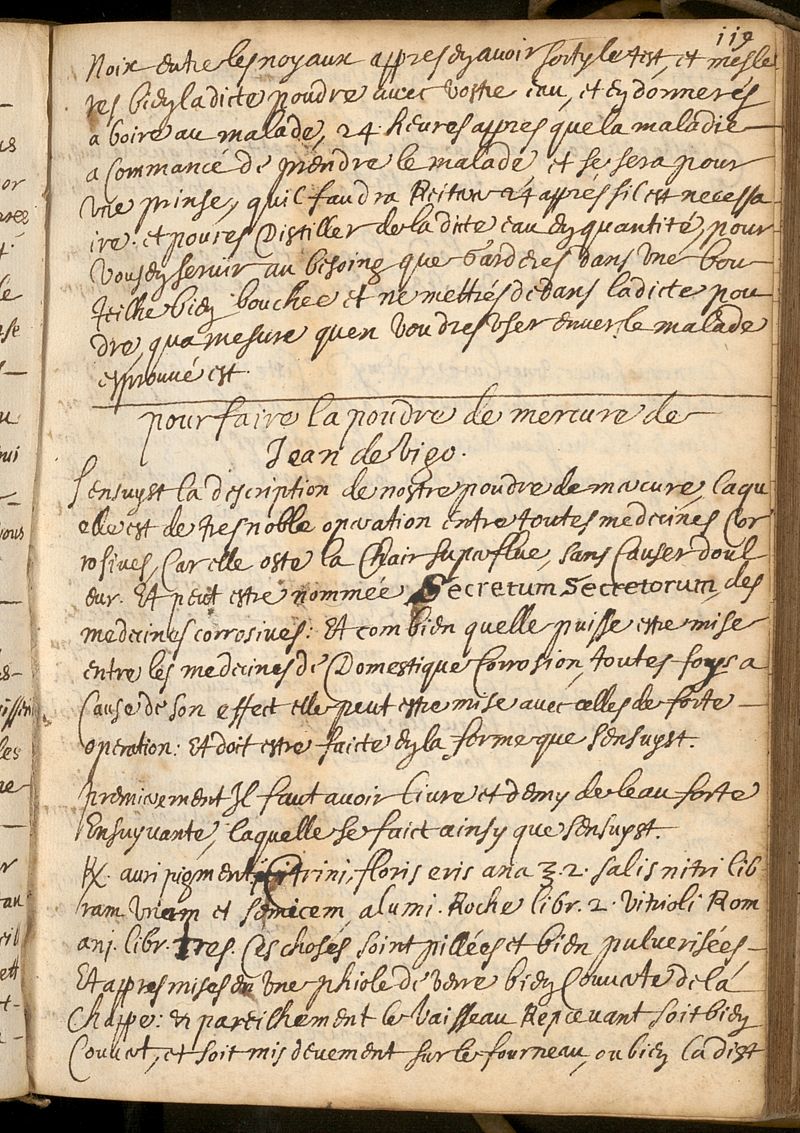 119
Noix entre les noyaux appres en avoir sorty le test, et mesle
res bien ladicte poudre avec vostre eau, et en donnerés
a boire au malade, 24. heures appres que la maladie
a commancé de prendre le malade, et se sera pour
une prinse, quil faudra Reiterer 24 appres sil est necessa
ire. et poures Distiller de ladicte eau en quantité, pour
vous en servir au besoing que Garderes dans une bou
teilhe bien bouchee et ne mettrés dedans ladicte pou
dre, qua mesure quen voudres user envers le malade
esprouvé est.
pour faire la poudre de mercure de
Jean de vigo.
Sensuyst la description de nostre poudre de mercure, laqu
elle est de tres noble operation entre toutes medecines Cor
rosives, Car elle oste la Chair superflue, sans Causer doul
eur. Et peut estre nommée Secretum Secretorum, des
medecines corrosives: Et com bien quelle puisse estre mise
entre les medecines de Domestique Corrosion, toutes foys a
Cause de son effect elle peut estre mise avec celles de forte
operation: Et doit estre faicte en la forme que sensuyst.
premierement Il faut avoir livre et demy de leau forte
Ensuyvante, laquelle se faict ainsy que sensuyst.
℞. auripigmenti Citrini, floris eris ana ʒ. 2. salis nitri lib
ram unam et semicem, alumi. Roche libr. 2. vitrioli Rom
ani. libr. tres. Ces choses soint pillées et bien pulverisées
Et appres mises en une phiole de verre bien Couverte de la
Chappe: et pareilhement le vaisseau Repcevant soit bien
Couvert, et soit mis deuement sur le fourneau, ou bien la dist